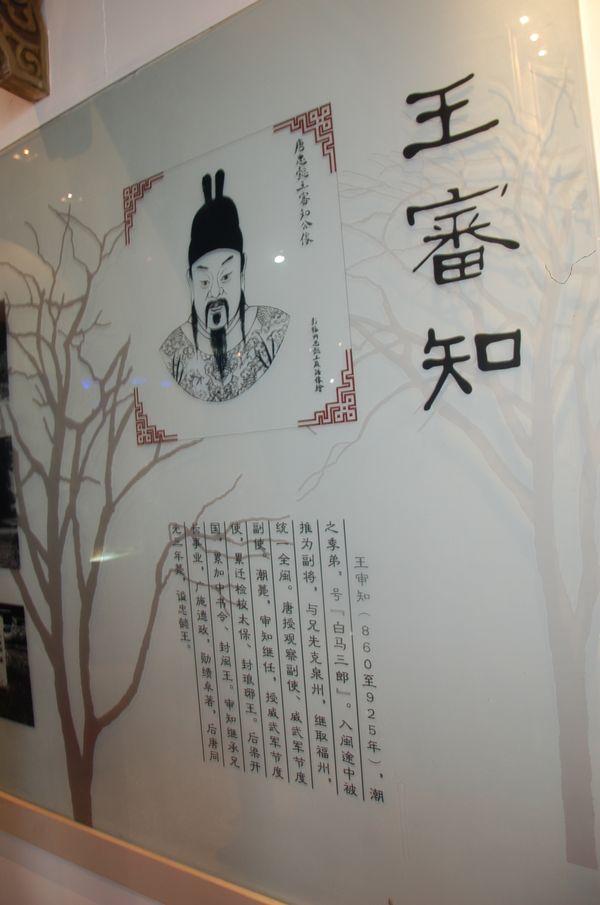 王審知
唐忠懿王審知公像
王审知（860至925年），潮
之季弟，号『白马三郎』。入闽途中被
推为副将，与兄先克泉州，继取福州，
统一全闽。唐授观察副使、威武军节度
副使。潮薨，审知继任，授威武军节度
使，累迁检校太保、封琅琊王。后梁开
国，累加中书令、封闽王。审知继承兄
长事业，广施德政，勋绩卓著，后唐同
光三年薨，谥忠懿王。